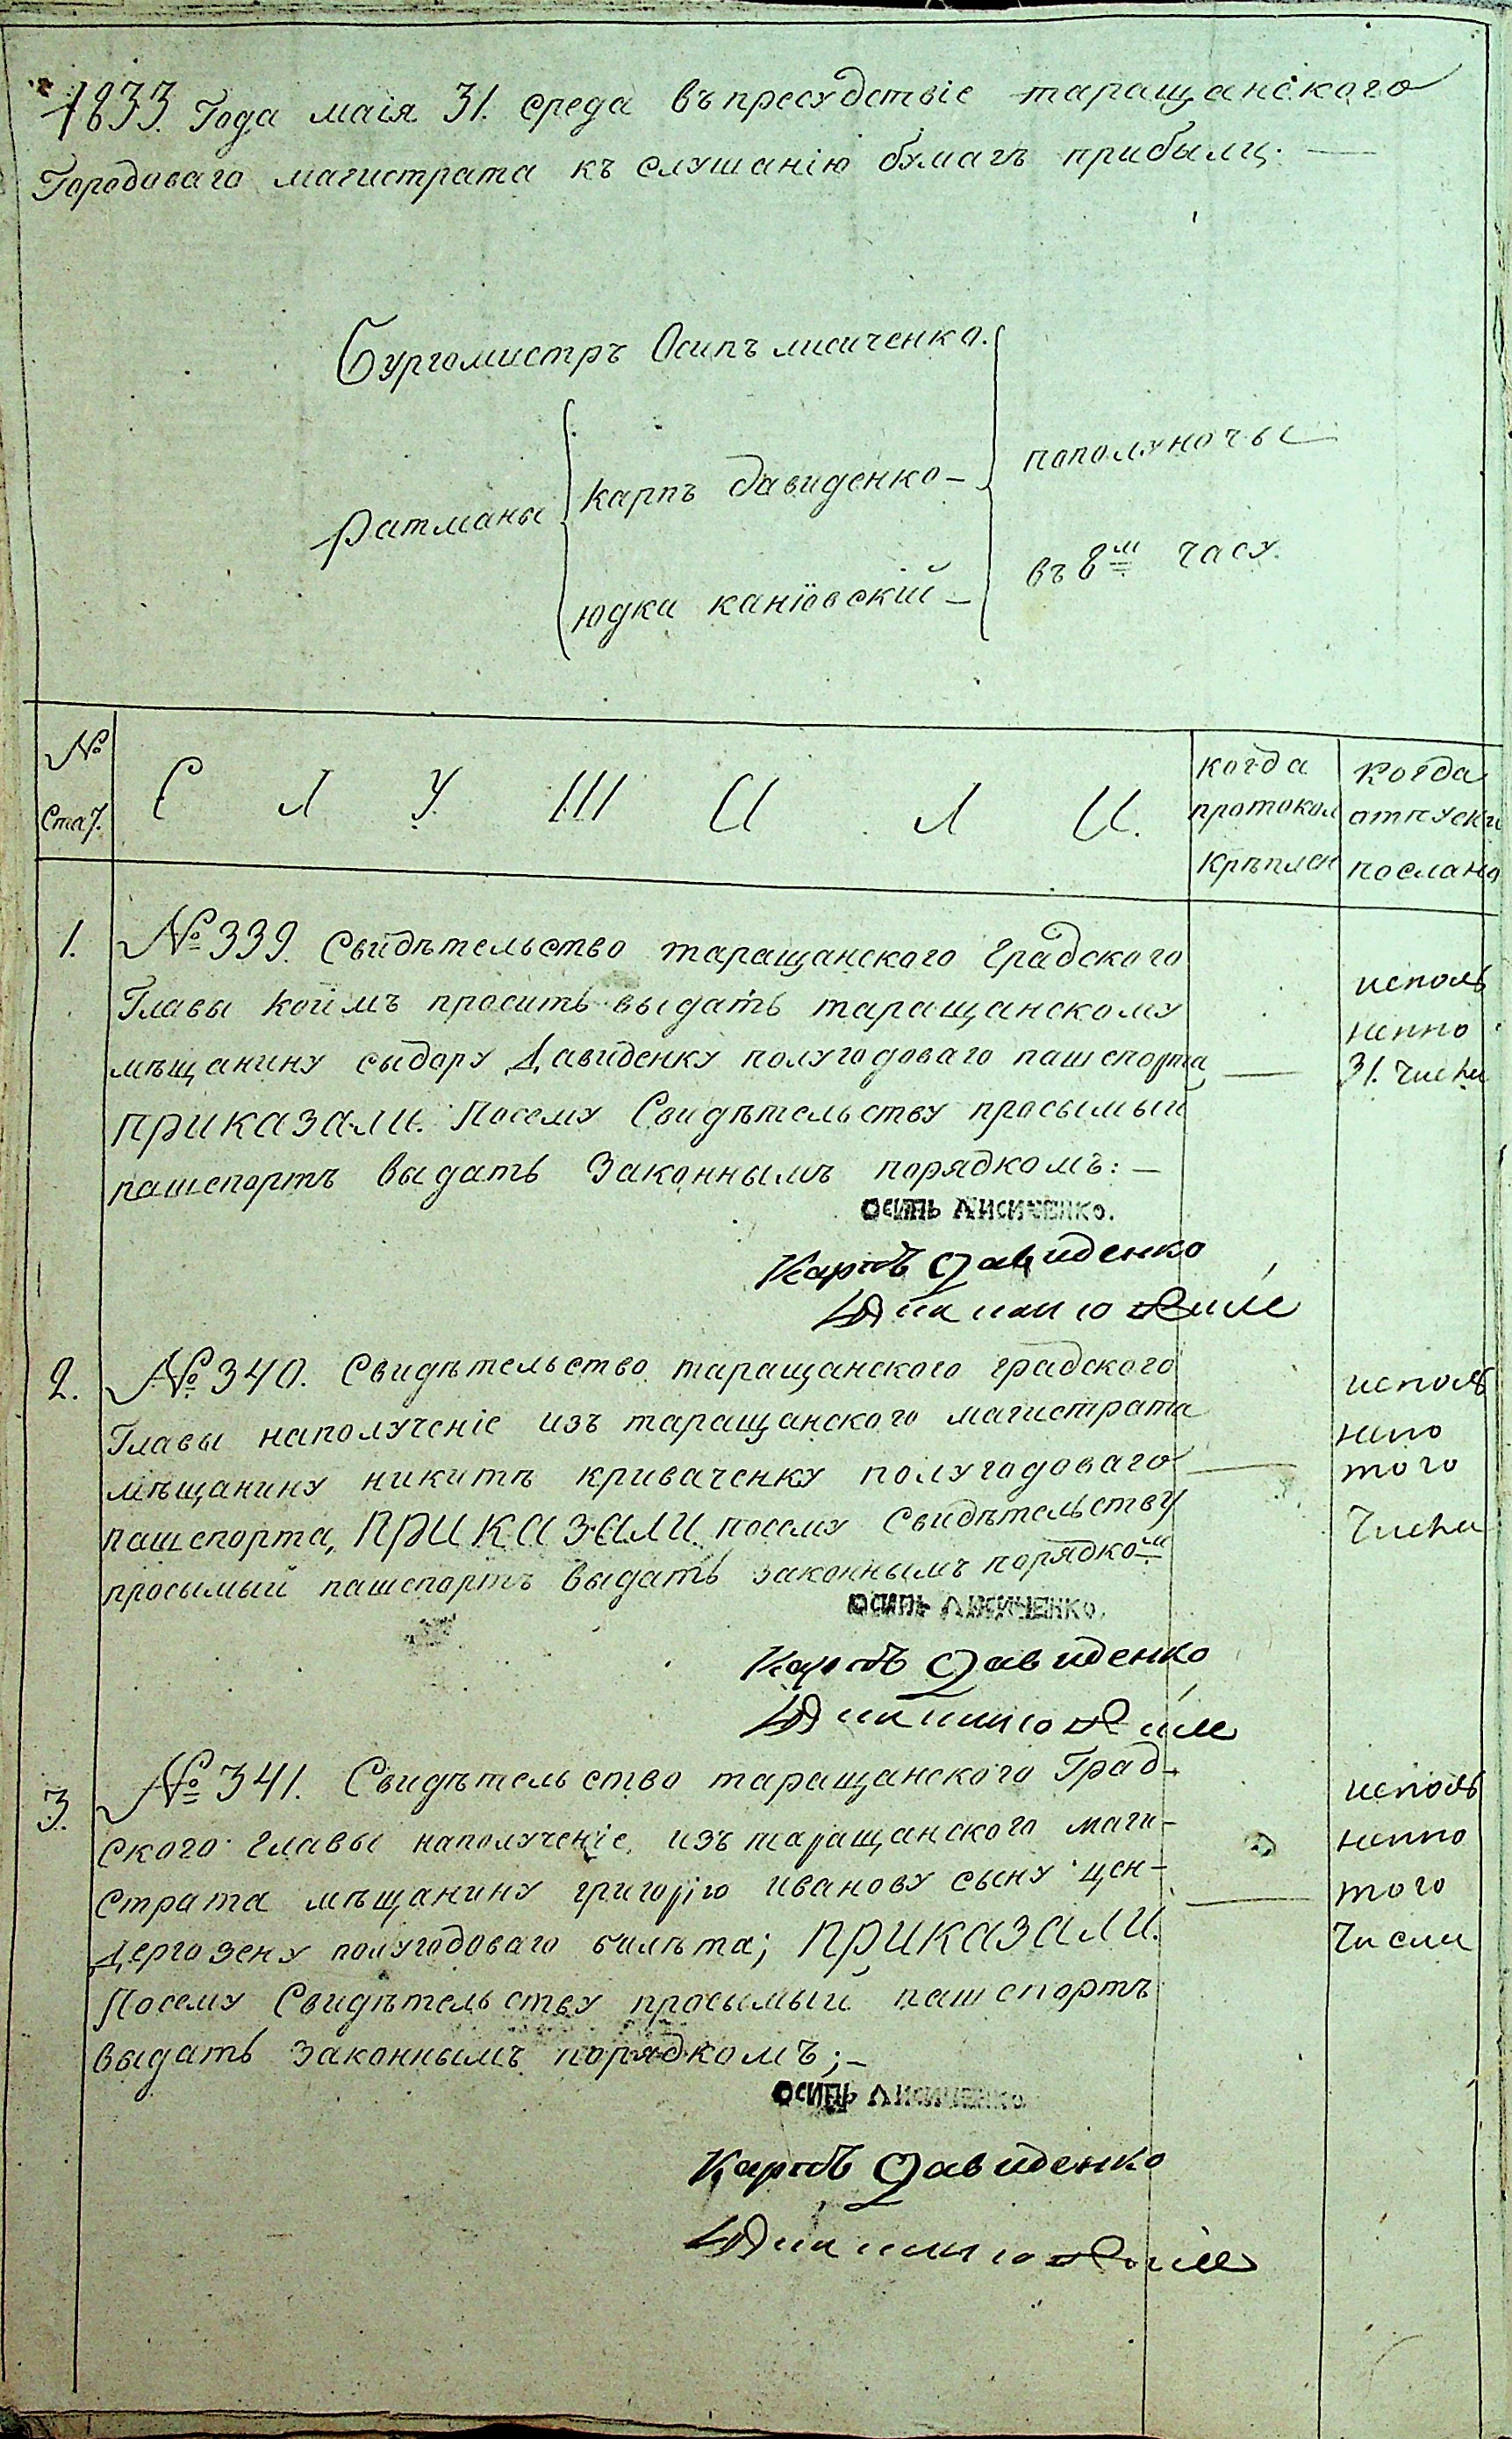 1833. Года маія 31. среда въ пресудствіе таращанского
Городоваго магистрата къ слушанію бумагъ прибыли.
Бургомистръ Осипъ лисиченко.
Ратманы
карпъ давиденко
юдка каніовскій
пополуночы
въ 8м часу.
№ Стат.
С Л У Ш И Л И.
когда протокол крѣплен
когда отпуски послано
1. №339. Свидѣтельство таращанского градского
Главы коимъ просить выдать таращанскому
мѣщанину сыдору Давиденку полугодоваго пашспорта
приказали. Посему Свидѣтельству просымый
пашспортъ выдать Законнымъ порядкомъ:
исполь
ненно
31. числа
Осипъ Лисиченко.
Карпъ Давиденко
2. №340. Свидѣтельство таращанского градского
Главы наполученіе изъ таращанского магистрата
мѣщанину никитѣ криваченку полугодоваго
пашспорта, приказали посему Свидѣтельству
просымый пашспортъ выдать законнымъ порядком
исполь
нено
того
числа
Осипъ Лисиченко.
Карпъ Давиденко
3. №341. Свидѣтельство таращанского Град-
ского главы наполученіе изъ таращанского маги-
страта мѣщанину григорію иванову сыну цен-
дергозену полугодоваго билѣта; приказали.
Посему Свидѣтельству просымый пашспортъ
выдать законнымъ порядкомъ;
исполь
ненно
того
числа
Осипъ Лисиченко
Карпъ Давиденко